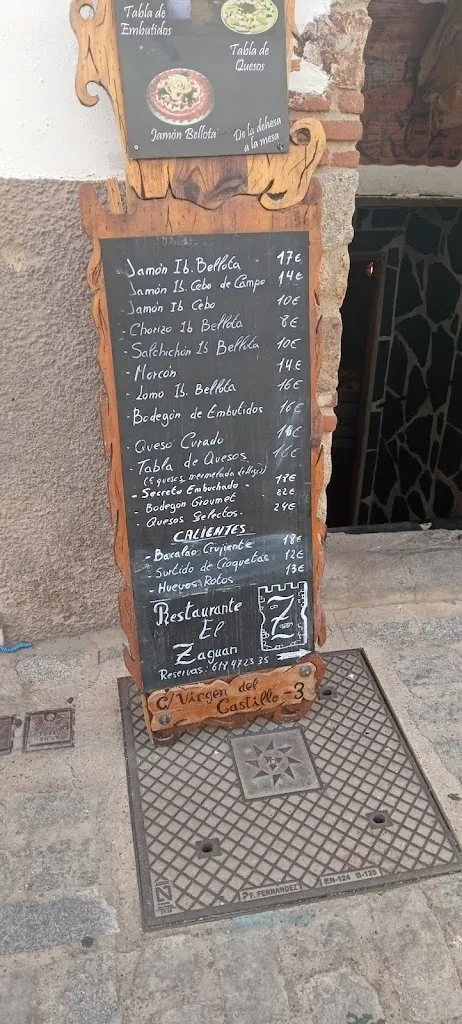 Tabla de
Embutidos
Tabla de
Quesos
Jamón Bellota
De la dehesa
a la mesa
Jamón Ib. Bellota 17€
Jamón Ib. Cebo de Campo 14€
Jamón Ib Cebo 10€
- Chorizo Ib Bellota 8€
- Salchichón Ib Bellota 10€
- Morcón 14€
- Lomo Ib. Bellota 16€
- Bodegón de Embutidos 16€
- Queso Curado
- Tabla de Quesos 16€
(5 quesos, mermelada de
- Secreto Embuchado - 18€
- Bodegón Groumet 22€
- Quesos Selectos - 24€
CALIENTES
- Bacalao Crujiente 18€
- Surtido de Croquetas 12€
- Huevos Rotos 13€
Restaurante
El
Zaguan
Z
Reservas: 618 472335
C/ Virgen del
Castillo - 3
F. FERNANDEZ EN-124 B-125